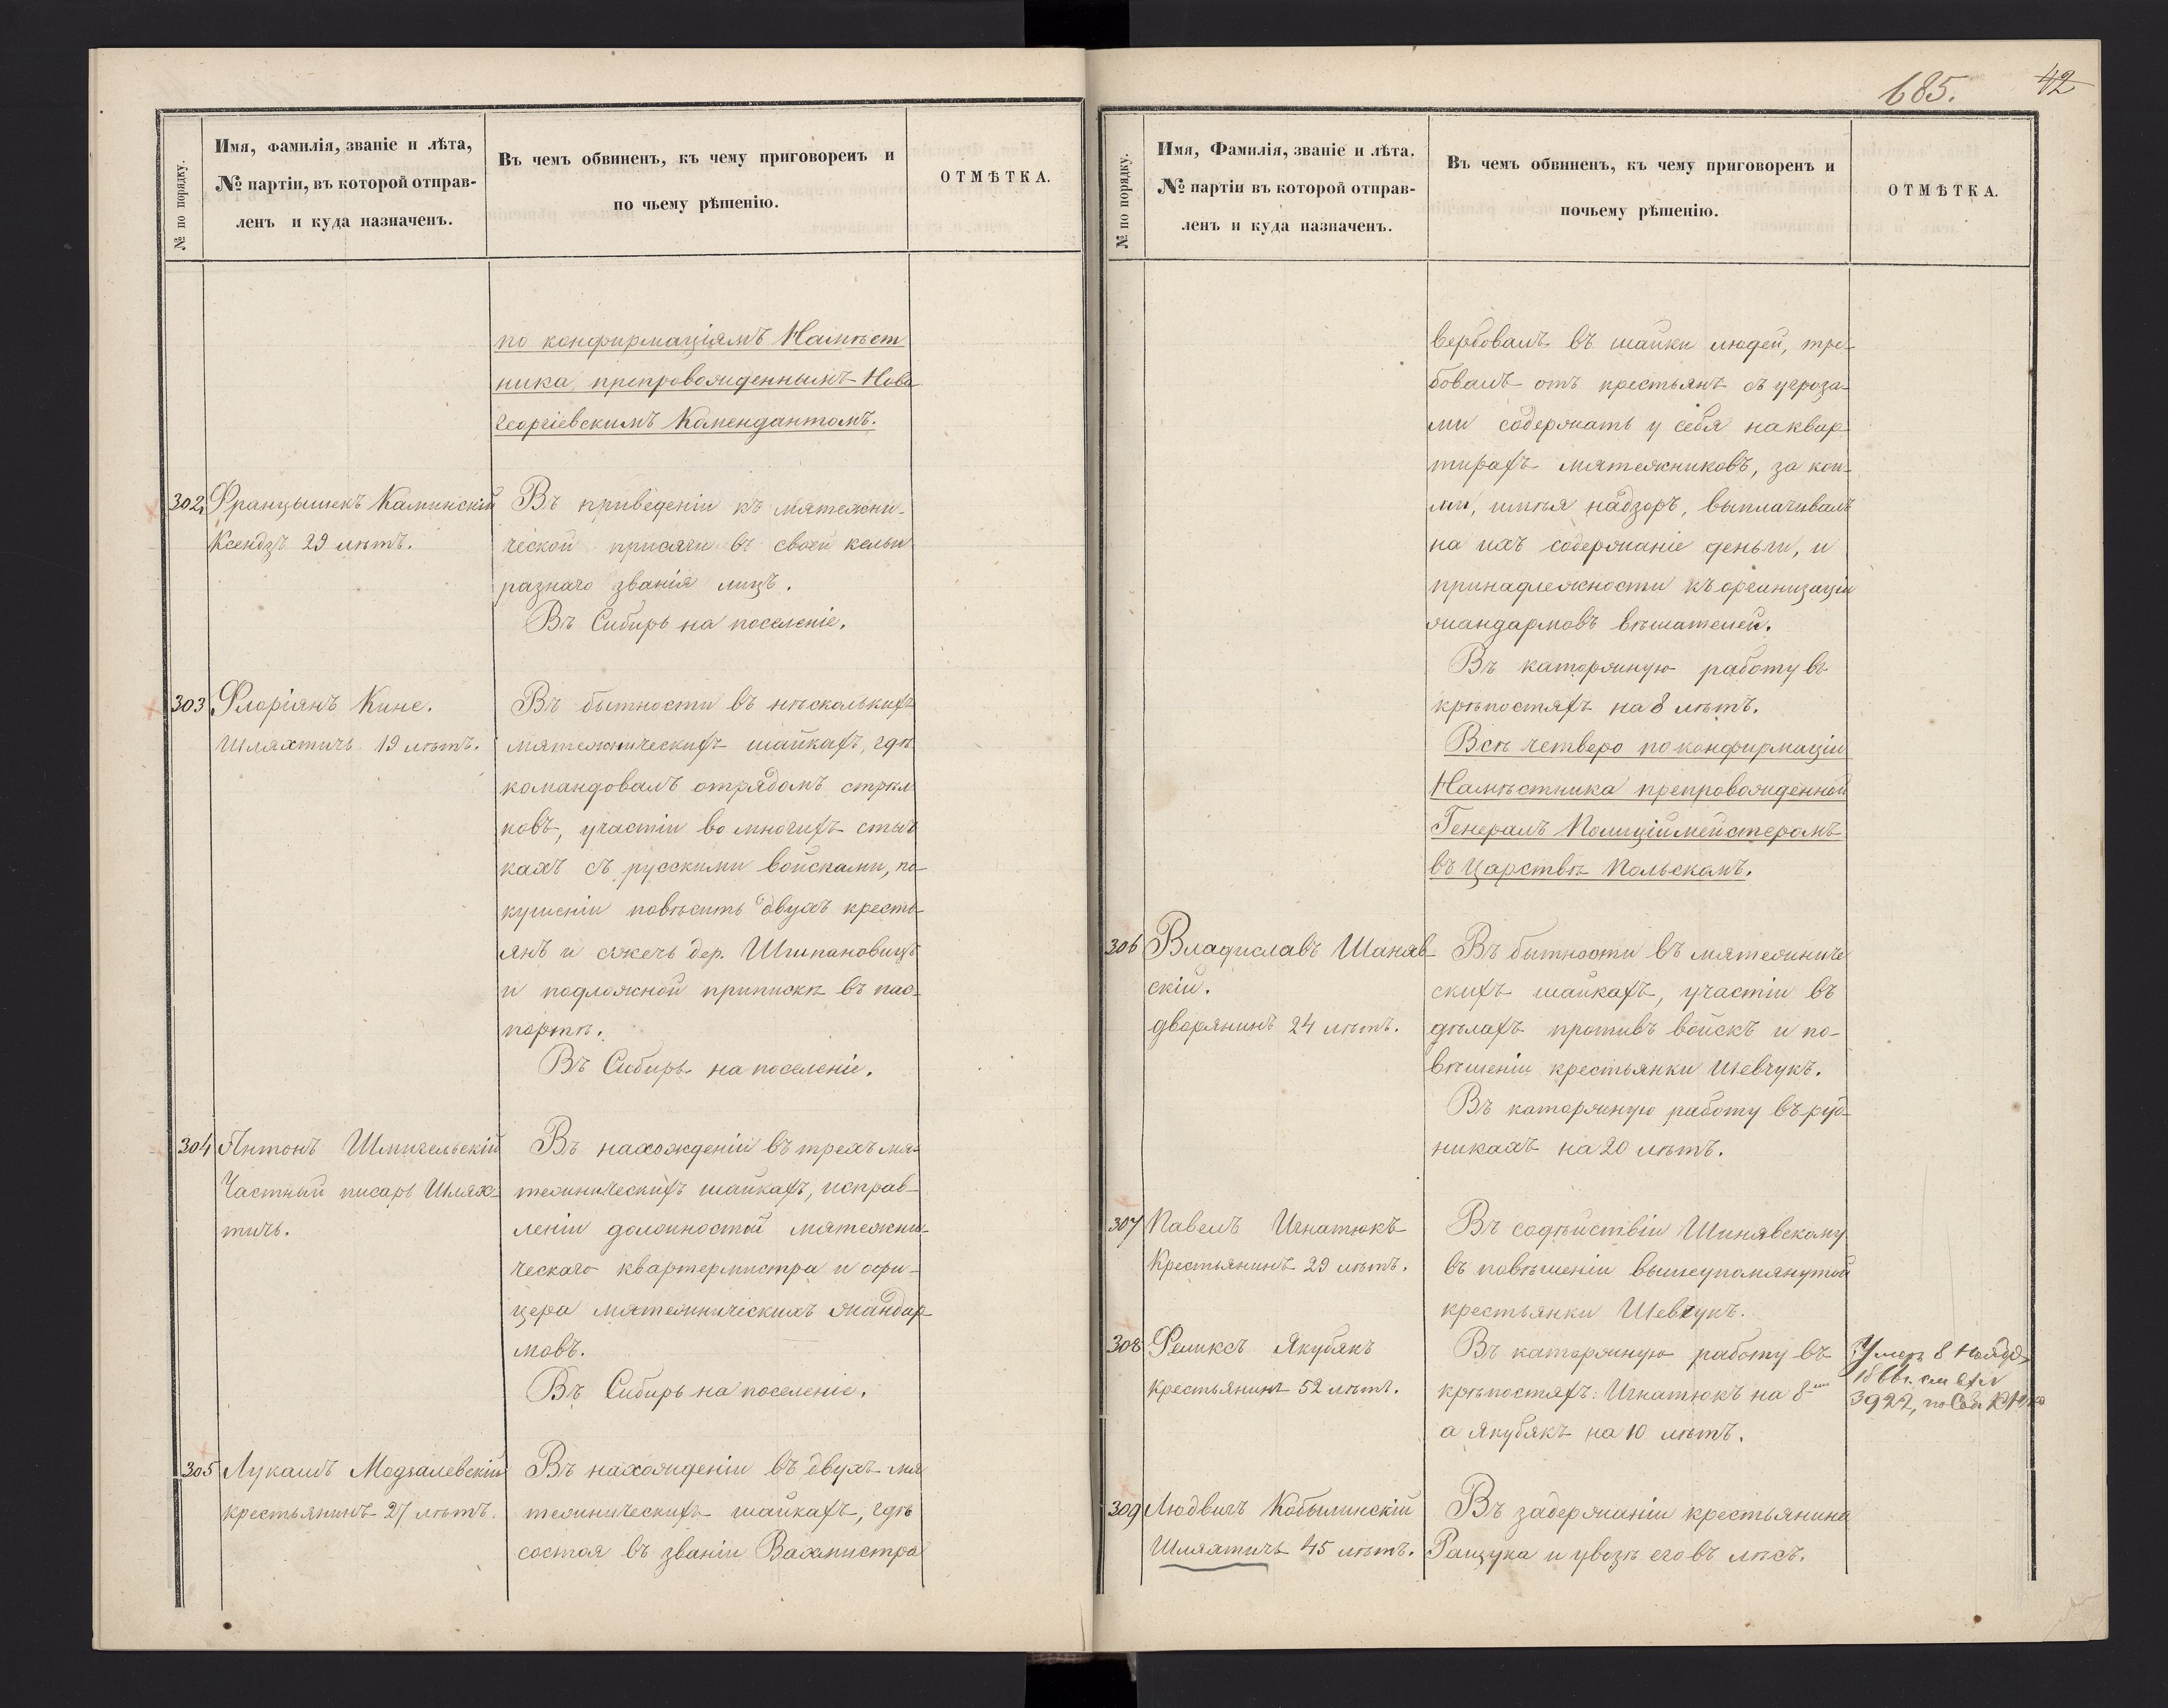 № по порядку.
Имя, Фамилія, званіе и лѣта,
№ партіи, въ которой отправ-
ленъ и куда назначенъ.
Въ чемъ обвиненъ, къ чему приговоренъ и
по чьему рѣшенію.
ОТМѢТКА.
по конфирмаціямъ Намѣст
ника, препровожденнымъ Ново
георгіевскимъ Комендантомъ.
302. Францышекъ Каминскій
Ксендзъ 29 лѣтъ.
Въ приведеніи къ мятежни-
ческой присяги въ своей кельи
разнаго званія лицъ.
Въ Сибирь на поселеніе.
303 Флоріянъ Кине.
Шляхтичъ 19 лѣтъ.
Въ бытности въ нѣсколькихъ
мятежническихъ шайкахъ, гдѣ
командовалъ отрядомъ стрѣл
ковъ, участіи во многихъ стыч
кахъ съ русскими войсками, по-
кушеніи повѣсить двухъ кресть-
янъ и сжечь дер. Шипановицъ
и подложной припискѣ въ пас-
портѣ.
Въ Сибирь на поселеніе.
304 Антонъ Шмигельскій
Частный писарь Шлях-
тичъ.
Въ нахожденіи въ трехъ мя-
тежническихъ шайкахъ, исправ-
леніи должностей мятежни-
ческаго квартермистра и офи-
цера мятежническихъ жандар-
мовъ.
Въ Сибирь на поселеніе.
305 Лукашъ Модзалевскій
крестьянинъ 27 лѣтъ.
Въ нахожденіи въ двухъ мя
тежническихъ шайкахъ, гдѣ
состоя въ званіи Вахмистра
685. 42
№ по порядку.
Имя, Фамилія, званіе и лѣта.
№ партіи въ которой отправ-
ленъ и куда назначенъ.
Въ чемъ обвиненъ, къ чему приговоренъ и
почьему рѣшенію.
ОТМѢТКА.
вербовалъ въ шайки людей, тре-
бовалъ отъ крестьянъ съ угроза-
ми содержать у себя на квар
тирахъ мятежниковъ, за кои-
ми, имѣя надзоръ, выплачивалъ
на ихъ содержаніе деньги, и
принадлежности къ организаціи
жандармовъ вѣшателей.
Въ каторжную работу въ
крѣпостяхъ на 8 лѣтъ.
Всѣ четверо по конфирмаціи
Намѣстника препровожденной
Генералъ Полиціймейстеромъ
въ Царствѣ Польскомъ.
306 Владиславъ Шаняв-
скій.
дворянинъ 24 лѣтъ.
Въ бытности въ мятежниче
скихъ шайкахъ, участіи въ
дѣлахъ противъ войскъ и по-
вѣшеніи крестьянки Шевчукъ.
Въ каторжную работу въ руд-
никахъ на 20 лѣтъ.
307 Павелъ Игнатюкъ
Крестьянинъ 29 лѣтъ.
Въ содѣйствіи Шинявскому
въ повѣшеніи вышеупомянутой
крестьянки Шевчукъ.
308 Феликсъ Якубякъ
Крестьянинъ 52 лѣтъ.
Въ каторжную работу въ
крѣпостяхъ: Игнатюкъ на 8
а Якубякъ на 10 лѣтъ.
Умеръ 8 Ноябр.
3922, по
309 Людвигъ Кобылинскій
Шляхтичъ 45 лѣтъ.
Въ задержаніи крестьянина
Ращука и увозѣ его въ лѣсъ.